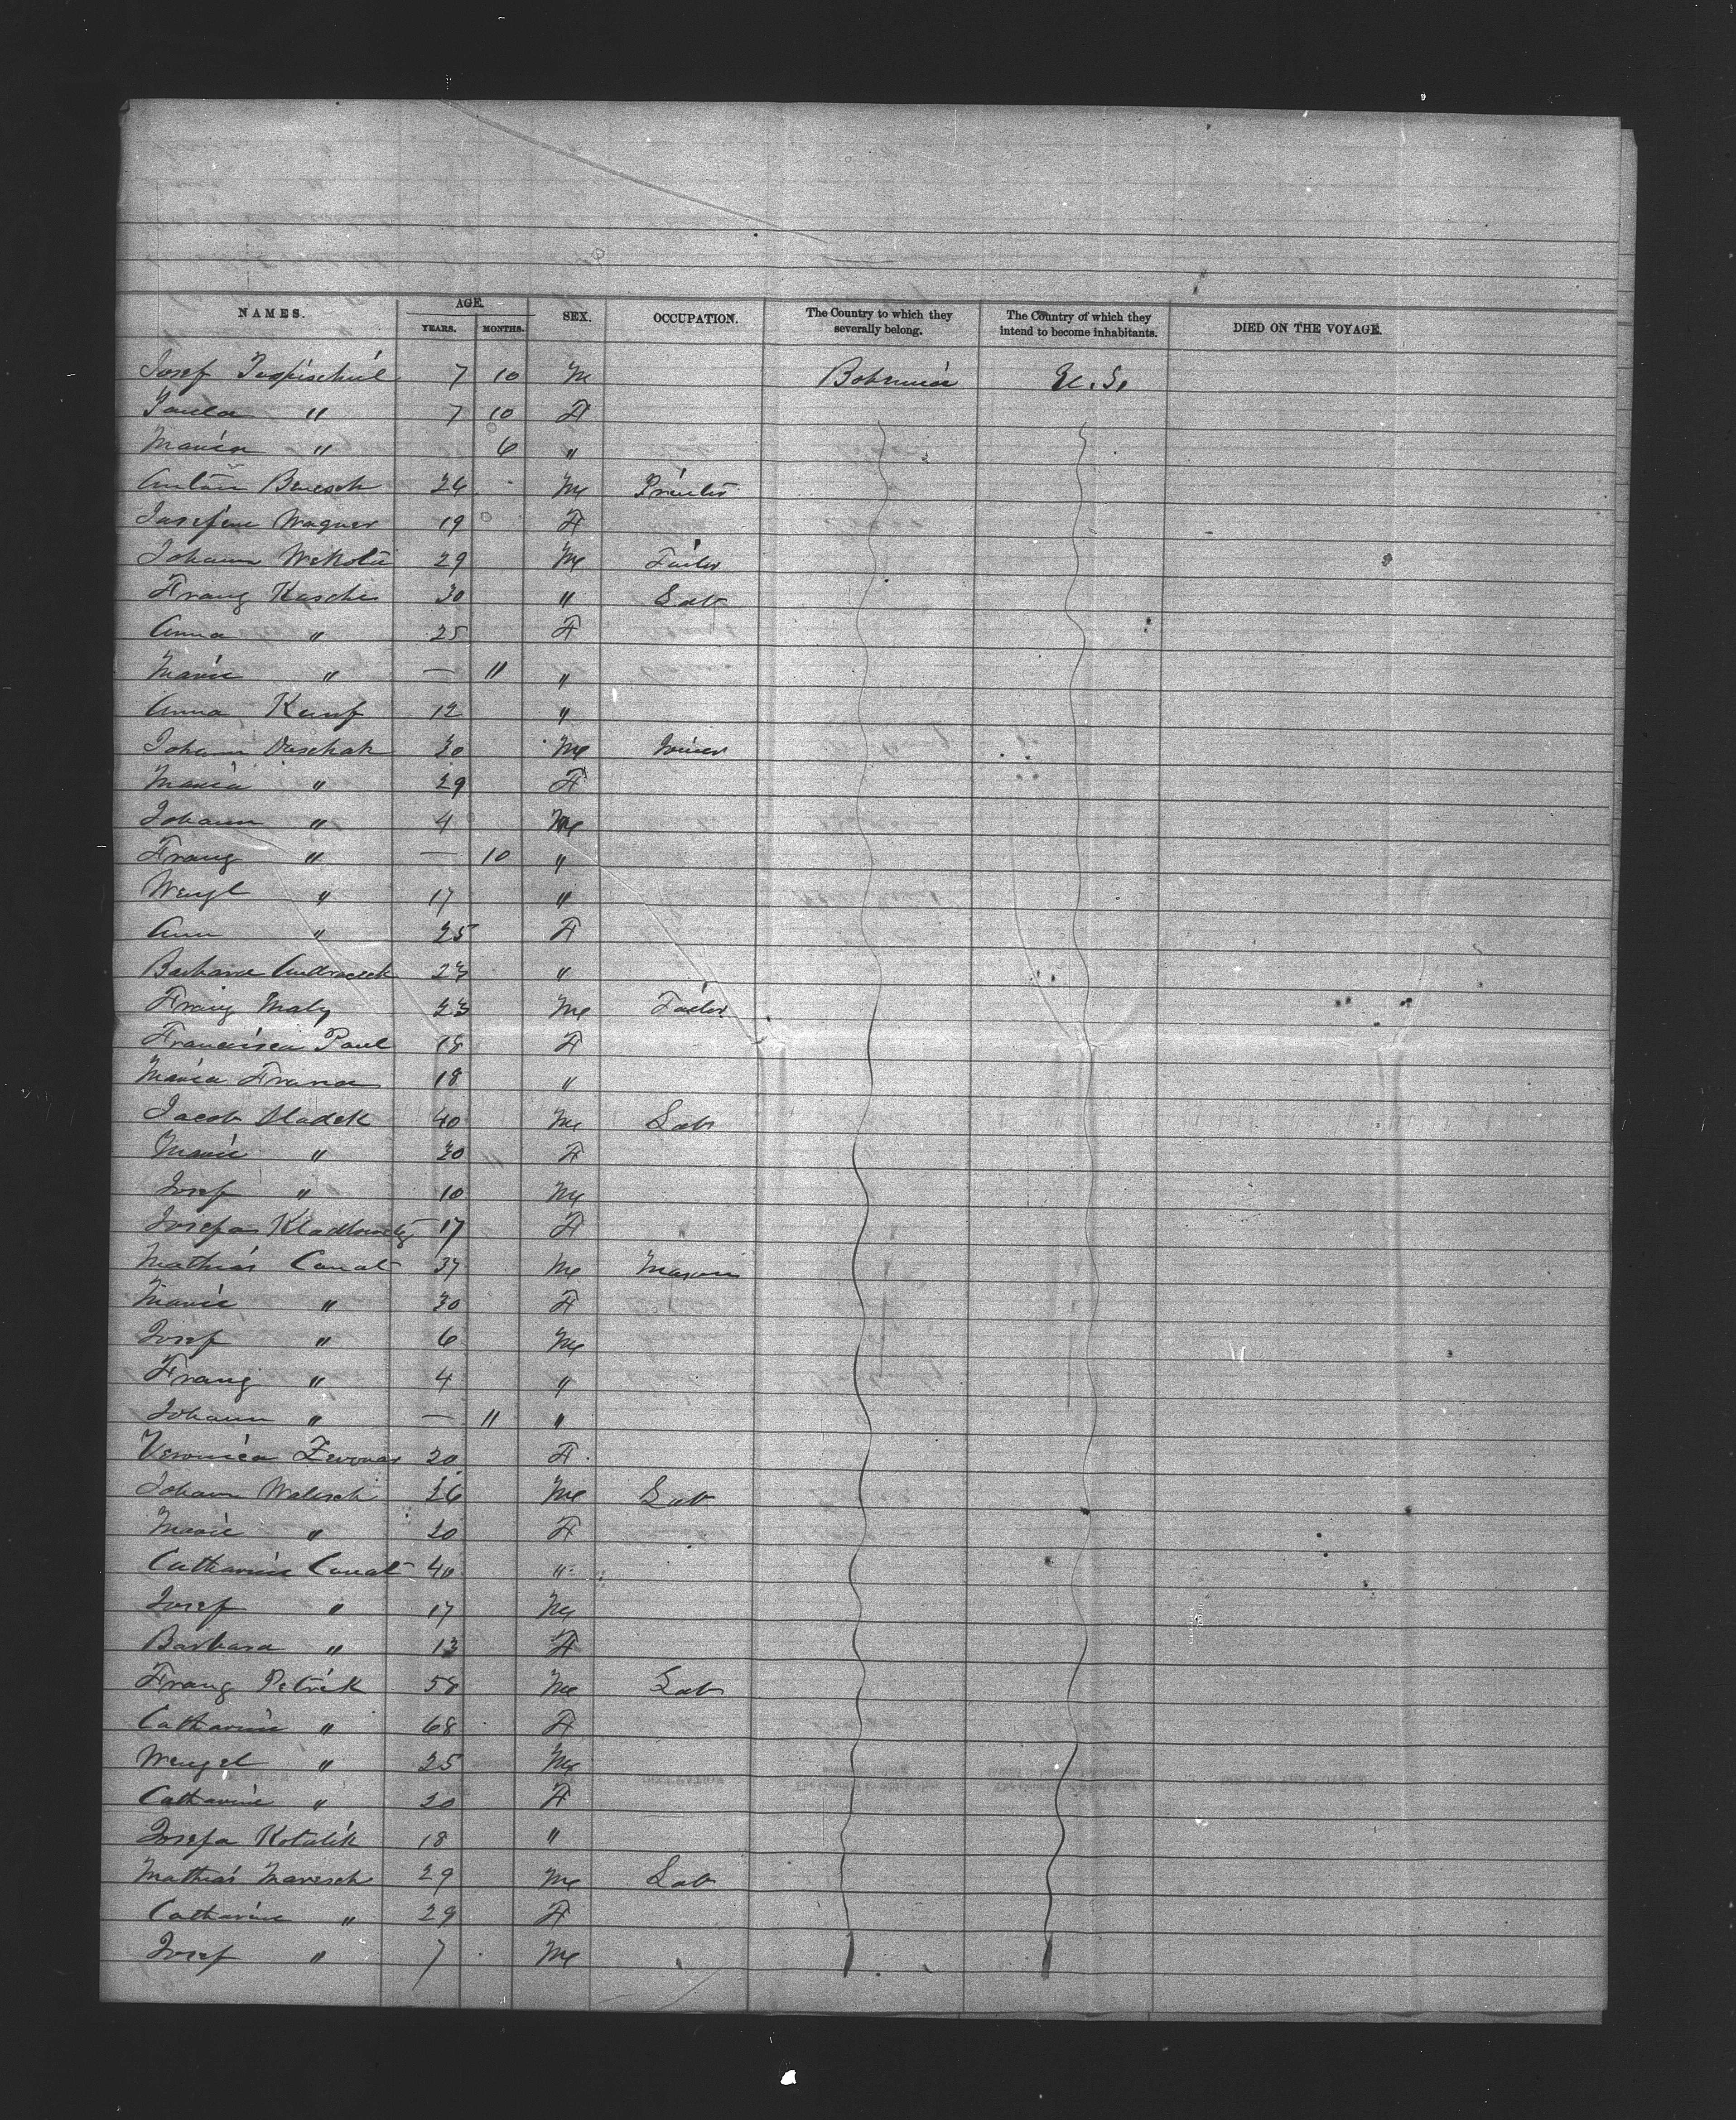 NAMES. AGE. YEARS. MONTHS. SEX. OCCUPATION. The Country to which they severally belong. The Country of which they intend to become inhabitants. DIED ON THE VOYAGE.
Josef 7 10 M Bohemia U. S.
Paula " 7 10 F
Maria " 6 "
Anton Benesch 24 M Printer
Josefine Wagner 19 F
Johann 29 M Tailor
Franz 30 " Lab
Anna " 25 F
Marie " — 11 "
Anna 12 "
Johann 30 M Joiner
Maria " 29 F
Johann " 4 M
Franz " — 10 "
Wenzl " 17 "
Ann " 25 F
Barbara 23 "
Franz Maly 23 M Tailor
Francisca Paul 18 F
Maria 18 "
Jacob Sladek 40 M Lab
Marie " 30 F
Josef " 10 M
Josefa 17 F
Mathias Canat 37 M Mason
Marie " 30 F
Josef " 6 M
Franz " 4 "
Johann " — 11 "
Veronica 20 F
Johann Walesch 26 M Lab
Marie " 20 F
Catharine Canat 40 "
Josef " 17 M
Barbara " 13 F
Franz Petrik 58 M Lab
Catharine " 68 F
Wenzel " 25 M
Catharine " 20 F
Josefa Kotalik 18 "
Mathias Maresch 29 M Lab
Catharine " 29 F
Josef " 7 M